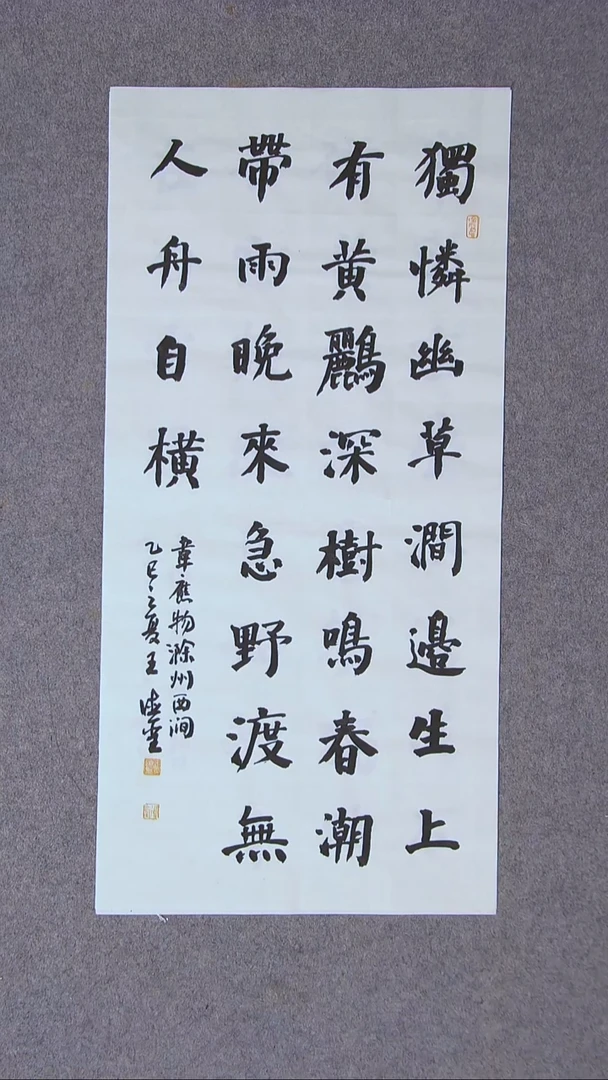 獨憐幽草澗邊生上
有黃鸝深樹鳴春潮
帶雨晚來急野渡無
人舟自橫
韋應物滁州西澗
乙巳之夏王